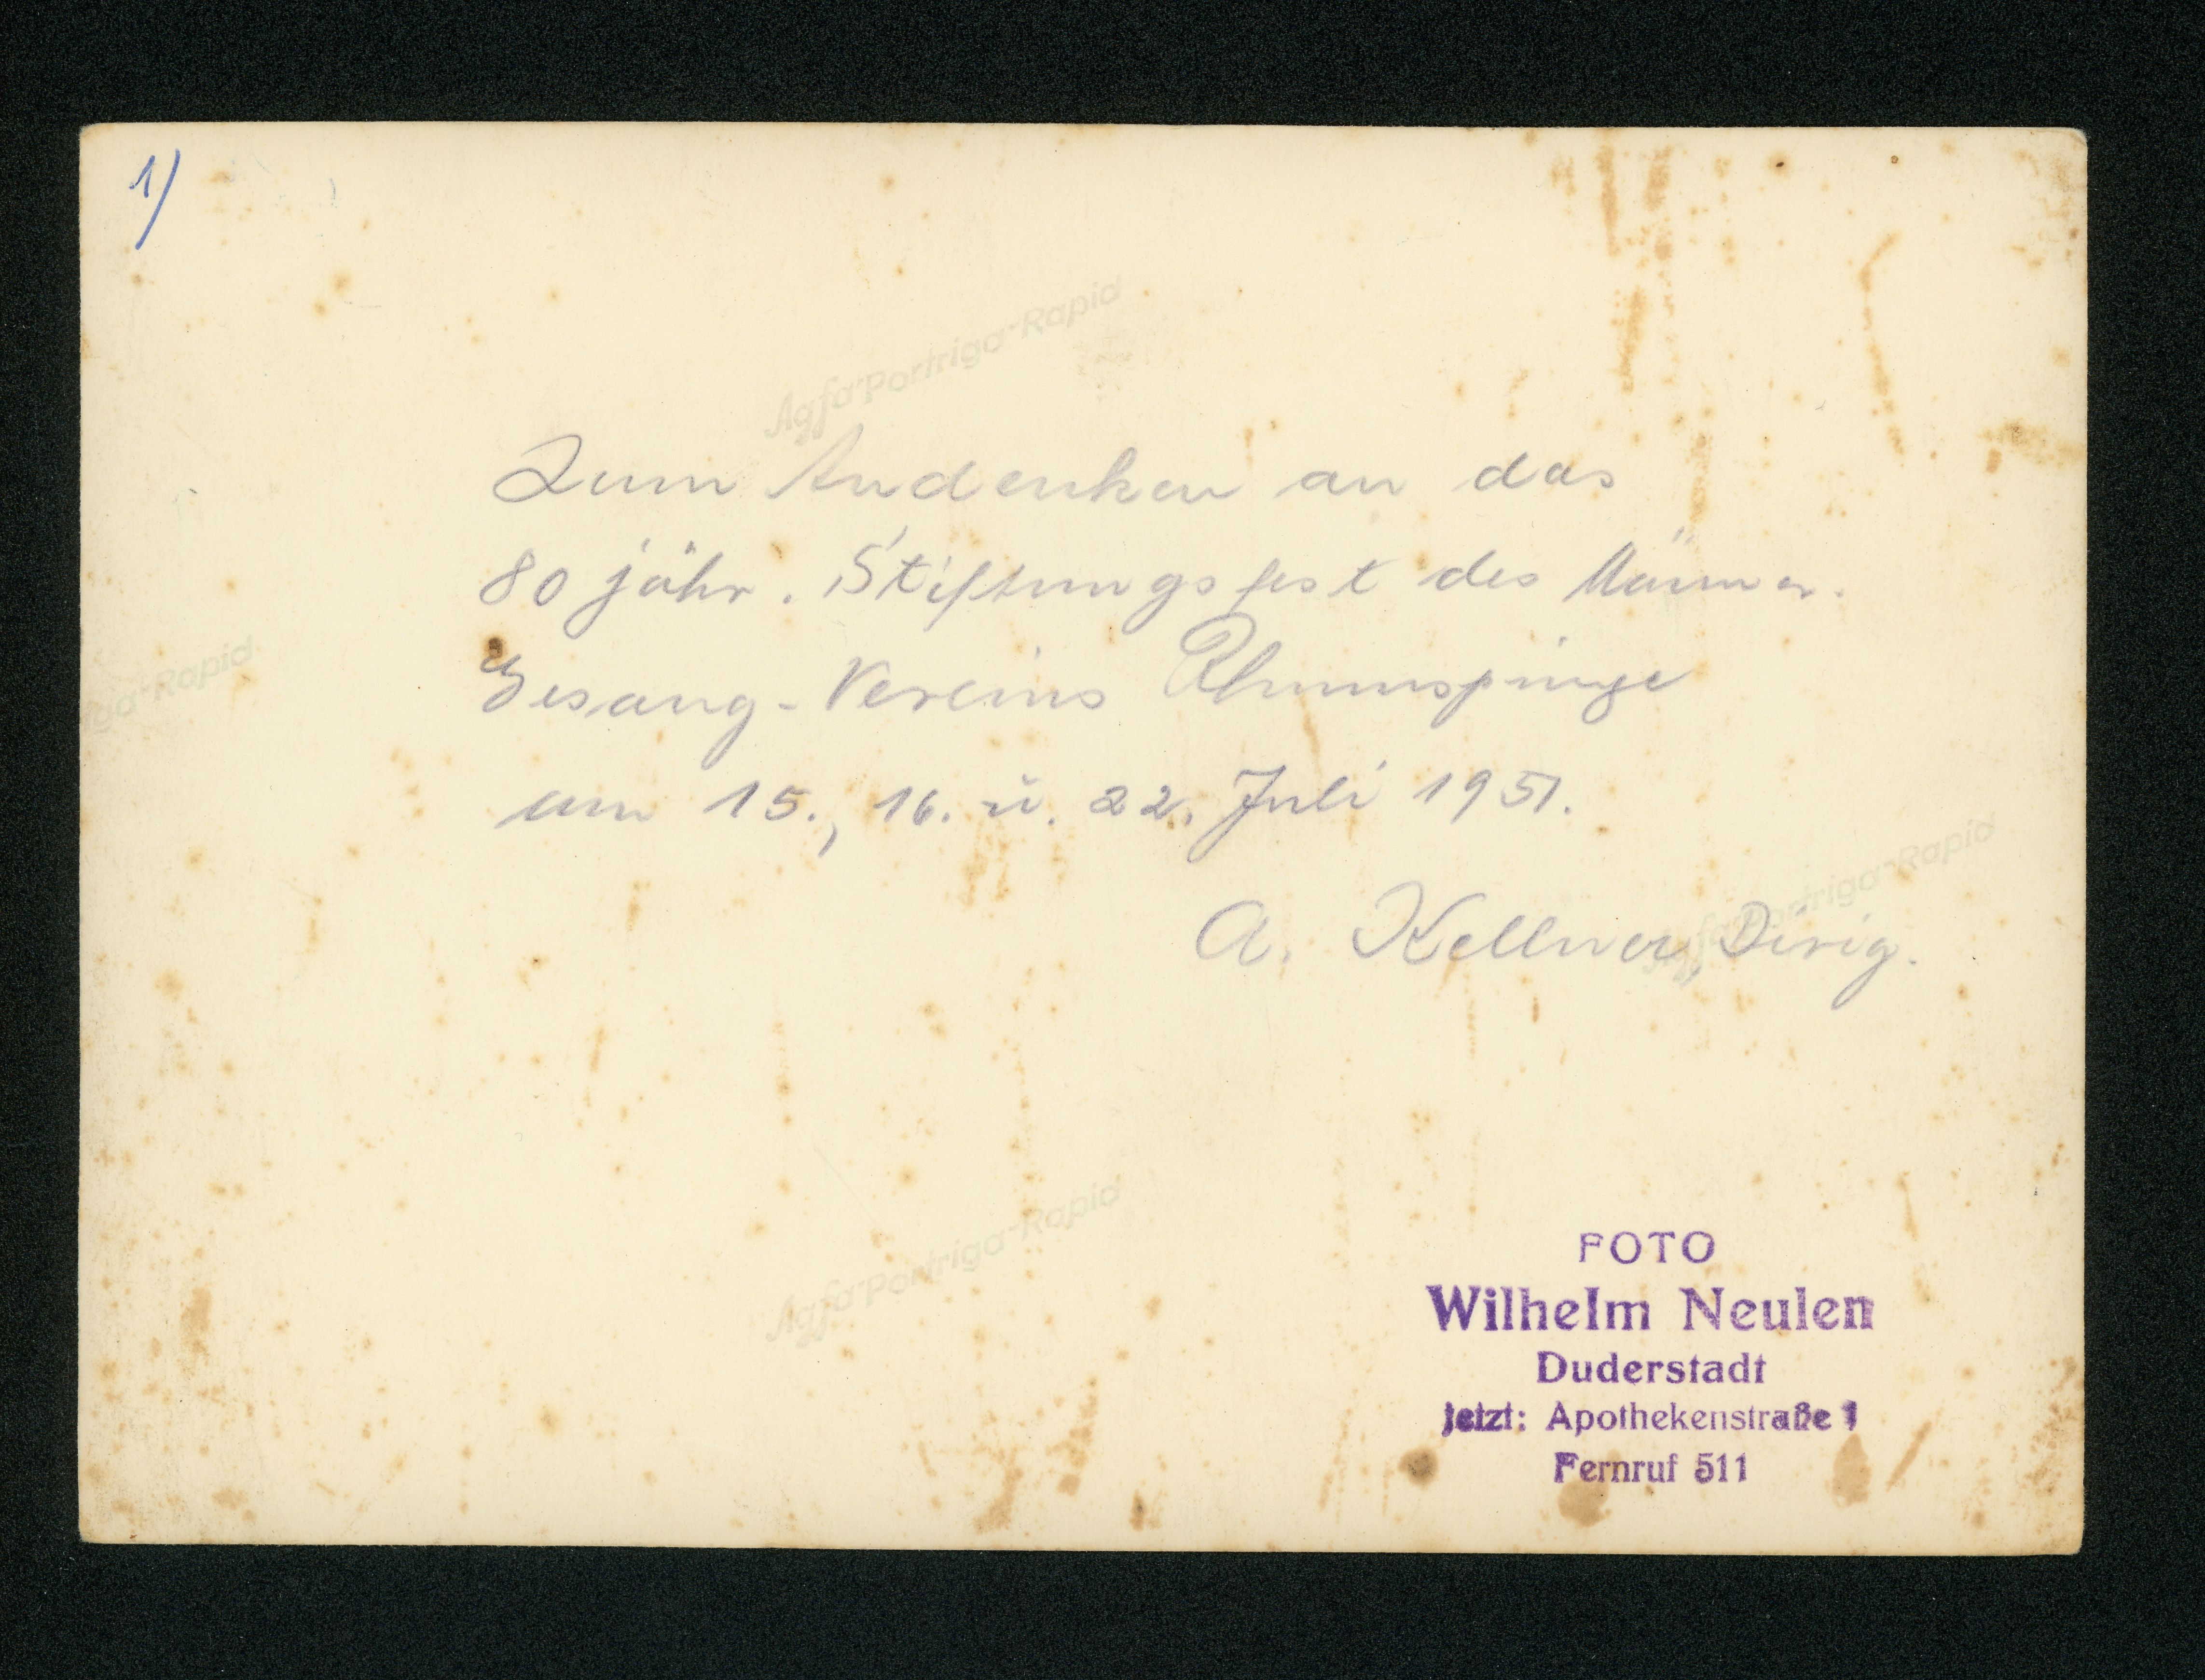 1)
Agfa-Portriga-Rapid
Zum Andenken an das
80 jähr. Stiftungsfest des Männer-
Gesang-Vereins Rhumspringe
iga-Rapid
am 15., 16. u. 22. Juli 1951.
Agfa-Portriga-Rapid
A. Kellner, Dirig.
Agfa-Portriga-Rapid
FOTO
Wilhelm Neulen
Duderstadt
jetzt: Apothekenstraße 1
Fernruf 511